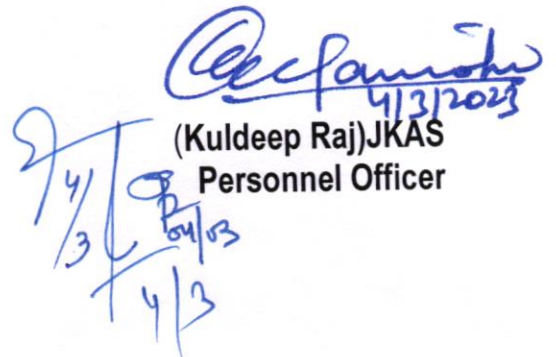 4/3/2023
(Kuldeep Raj)JKAS
Personnel Officer
4/3
04/03
4/3